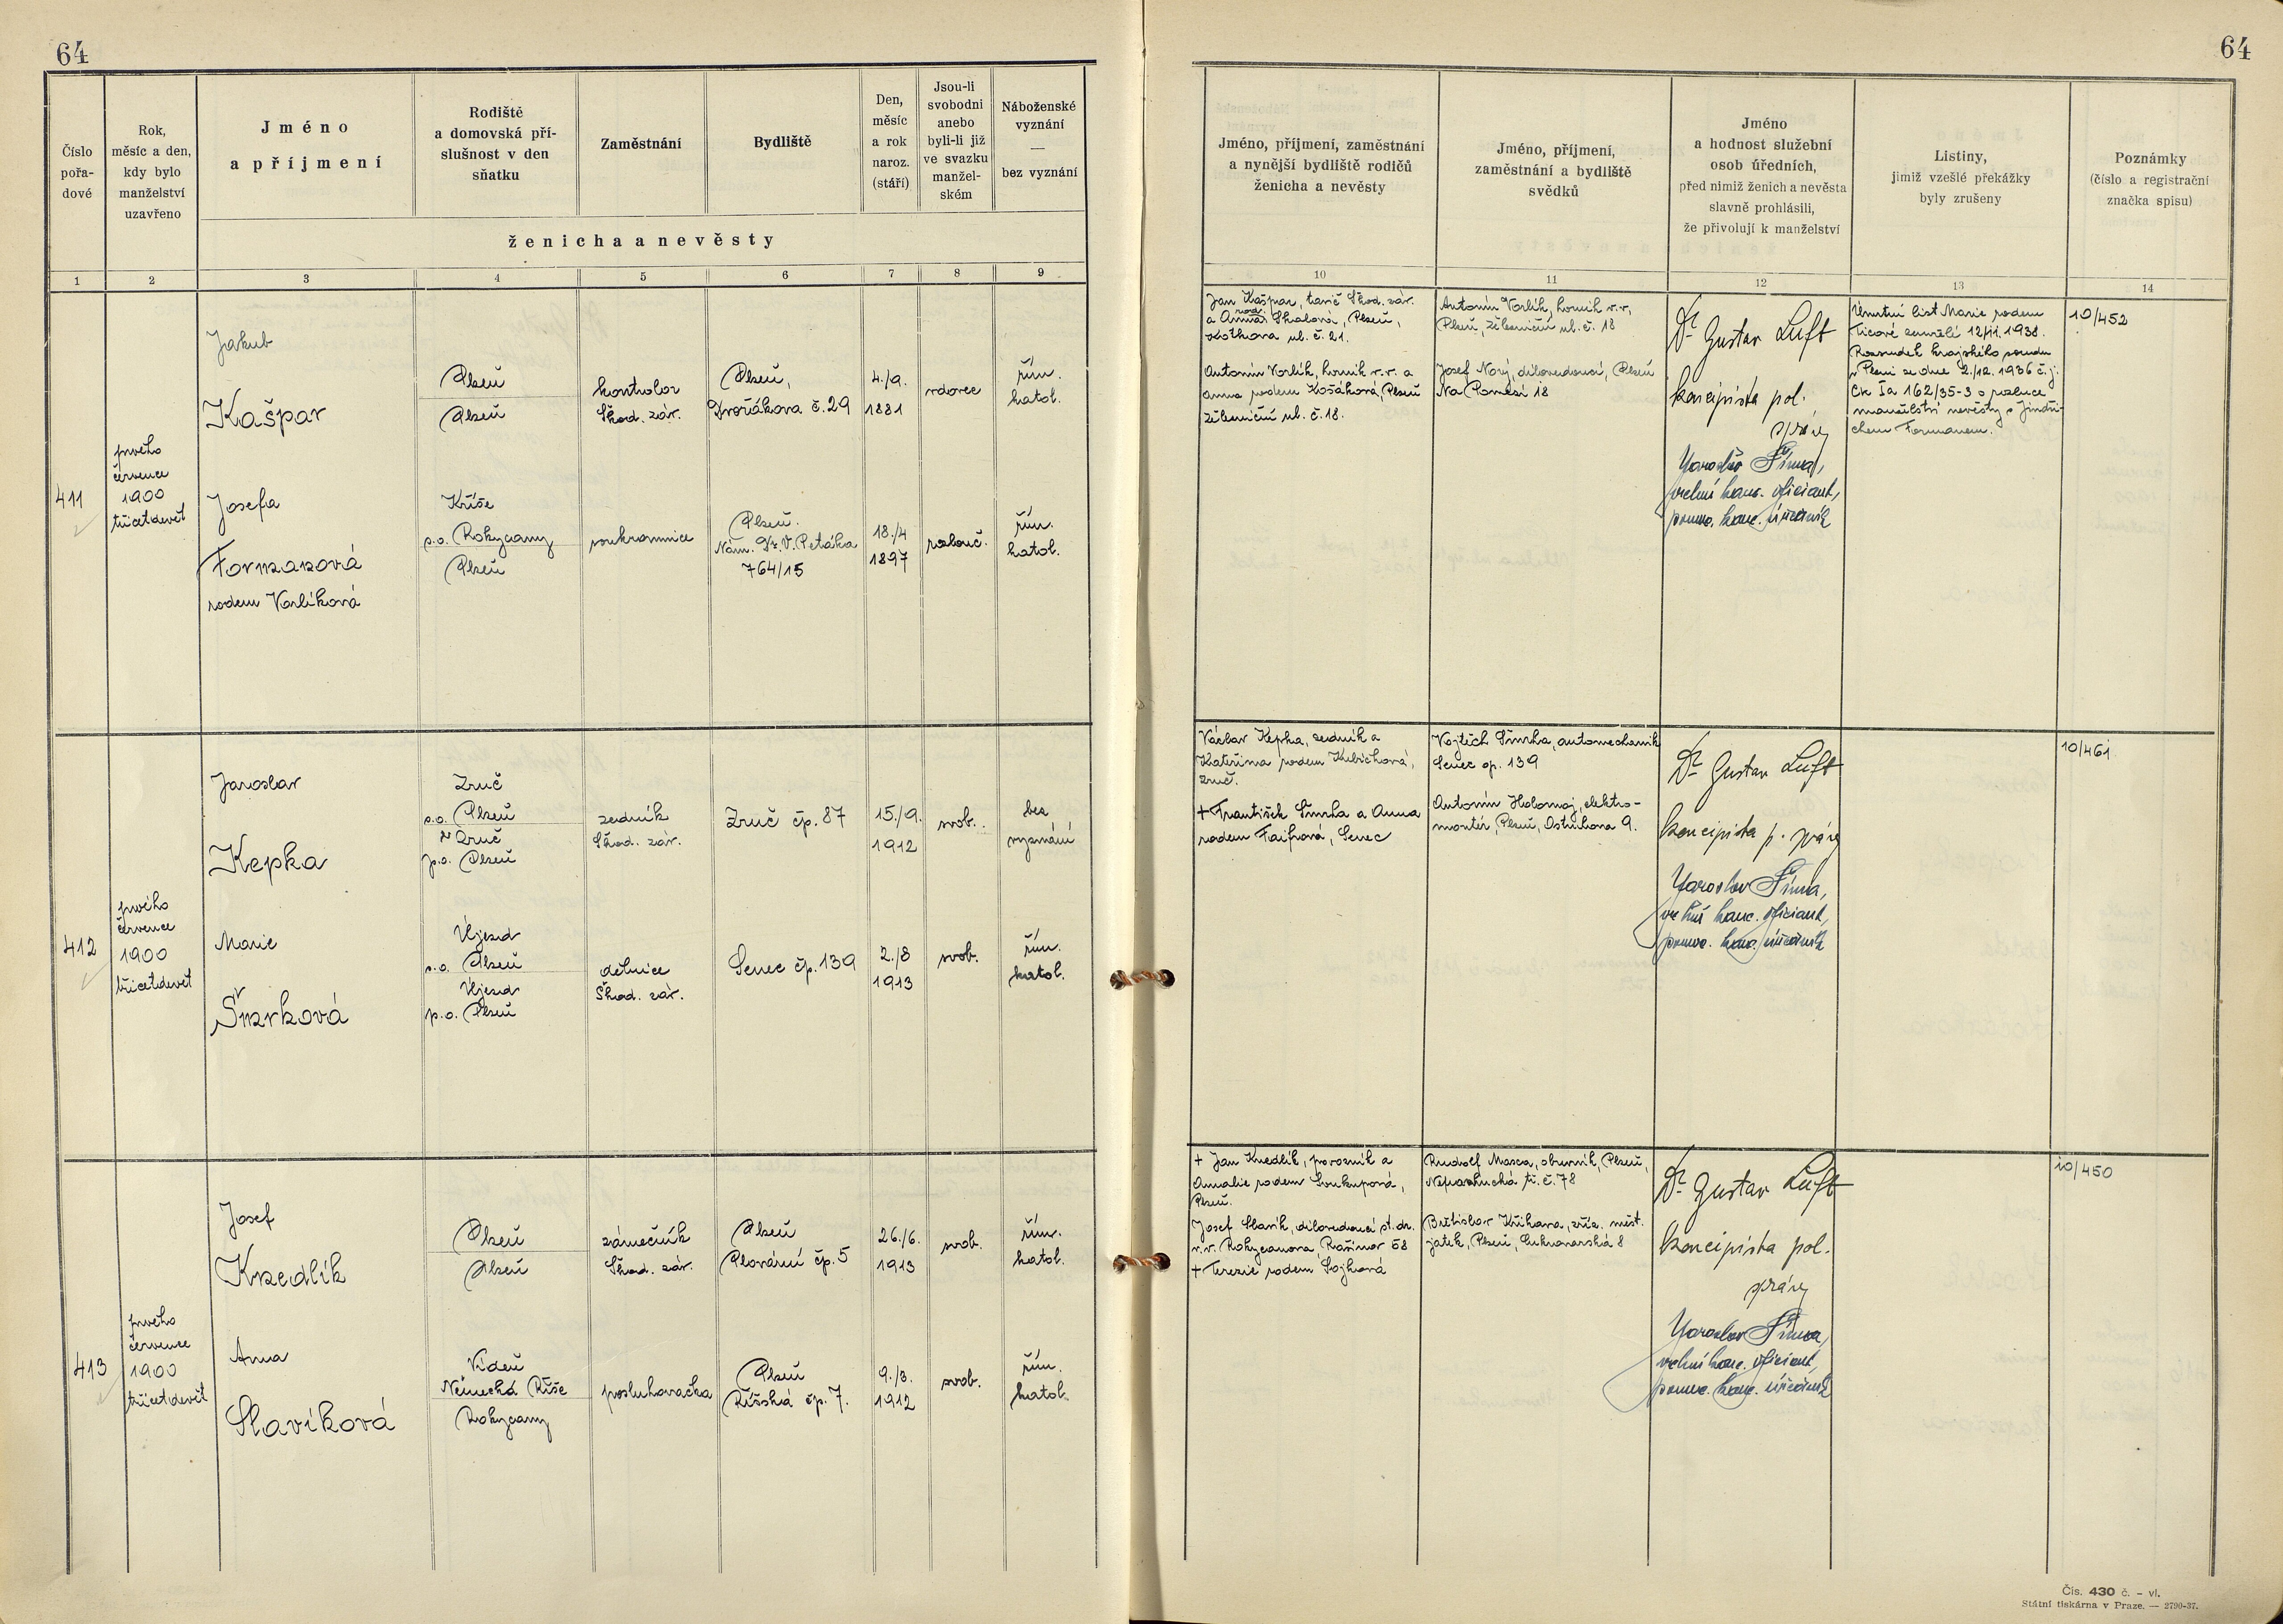 64
64
Číslo
pořa-
dové
Rok,
měsíc a den,
kdy bylo
manželství
uzavřeno
Jméno
a příjmení
Rodiště
a domovská pří-
slušnost v den
sňatku
Zaměstnání
Bydliště
Den,
měsíc
a rok
naroz.
(stáří)
Jsou-li
svobodni
anebo
byli-li již
ve svazku
manžel-
ském
Náboženské
vyznání
—
bez vyznání
ženicha a nevěsty
Jméno, příjmení, zaměstnání
a nynější bydliště rodičů
ženicha a nevěsty
Jméno, příjmení,
zaměstnání a bydliště
svědků
Jméno
a hodnost služební
osob úředních,
před nimiž ženich a nevěsta
slavně prohlásili,
že přivolují k manželství
Listiny,
jimiž vzešlé překážky
byly zrušeny
Poznámky
(číslo a registrační
značka spisu)
1 2 3 4 5 6 7 8 9 10 11 12 13 14
411
prvého
července
1900
třicetdevět
Jakub
Kašpar
Plzeň
Plzeň
kontrolor
Škod. záv.
Plzeň,
Dvořákova č. 29
4./9.
1881
vdovec
řím.
katol.
Josefa
Formanová
rodem Vorlíková
Kříše
p.o. Rokycany
Plzeň
soukromnice
Plzeň.
Nám. Dr. V. Petáka
764/15
18./4
1897
rozluč.
řím.
katol.
Jan Kašpar, tavič Škod. záv.
a Anna rod. Skalová, Plzeň,
Kotkova ul. č. 21.
Antonín Vorlík, horník v.v. a
Anna rodem Košáková, Plzeň
Železniční ul. č. 18.
Antonín Vorlík, horník v.v.
Plzeň, železniční ul. č. 18
Josef Nový, dílovedoucí, Plzeň
Na Pomězí 18
Dr Gustav Luft
koncipista pol.
správy
Jaroslav Šíma,
vrchní kanc. oficiant,
pomoc. kanc. úředník
Úmrtní list Marie rodem
Ticové zemřelé 12/11. 1938.
Rozsudek krajského soudu
v Plzni ze dne 2./12. 1936 č.j.
Ck Ia 162/35-3 o rozluce
manželství nevěsty s Jindři-
chem Formanem.
10/452
412
prvého
července
1900
třicetdevět
Jaroslav
Kepka
Zruč
p.o. Plzeň
Zruč
p.o. Plzeň
zedník
Škod. záv.
Zruč čp. 87
15./9.
1912
svob.
bez
vyznání
Marie
Šmrková
Újezd
p.o. Plzeň
Újezd
p.o. Plzeň
dělnice
Škod. záv.
Senec čp. 139
2./8
1913
svob.
řím.
katol.
Václav Kepka, zedník a
Kateřina rodem Kubíchová,
Zruč.
+ František Šmrha a Anna
rodem Faifrová, Senec
Vojtěch Šmrha, automechanik
Senec čp. 139
Antonín Holomaj, elektro-
montér, Plzeň, Ostruhova 9.
Dr Gustav Luft
koncipista p. správy
Jaroslav Šíma,
vrchní kanc. oficiant,
pomoc. kanc. úředník
10/461
413
prvého
července
1900
třicetdevět
Josef
Knedlík
Plzeň
Plzeň
zámečník
Škod. záv.
Plzeň
Plovární čp. 5
26./6.
1913
svob.
řím.
katol.
Anna
Slavíková
Vídeň
Německá Říše
Rokycany
posluhovačka
Plzeň
Říšská čp. 7.
9./3.
1912
svob.
řím.
katol.
+ Jan Knedlík, provazník a
Amalie rodem Soukupová,
Plzeň.
Josef Slavík, dílovedoucí st. dr.
v.v. Rokycanova 58
+ Terezie rodem Sojková
Rudolf Masca, obuvník, Plzeň,
Nepomucká tř. č. 78
Břetislav Kříhava, zříz. měst.
jatek, Plzeň, Cukrovarská 8
Dr Gustav Luft
koncipista pol.
správy
Jaroslav Šíma,
vrchní kanc. oficiant,
pomoc. kanc. úředník
10/450
Čís. 430 č. - vl.
Státní tiskárna v Praze. — 2790-37.